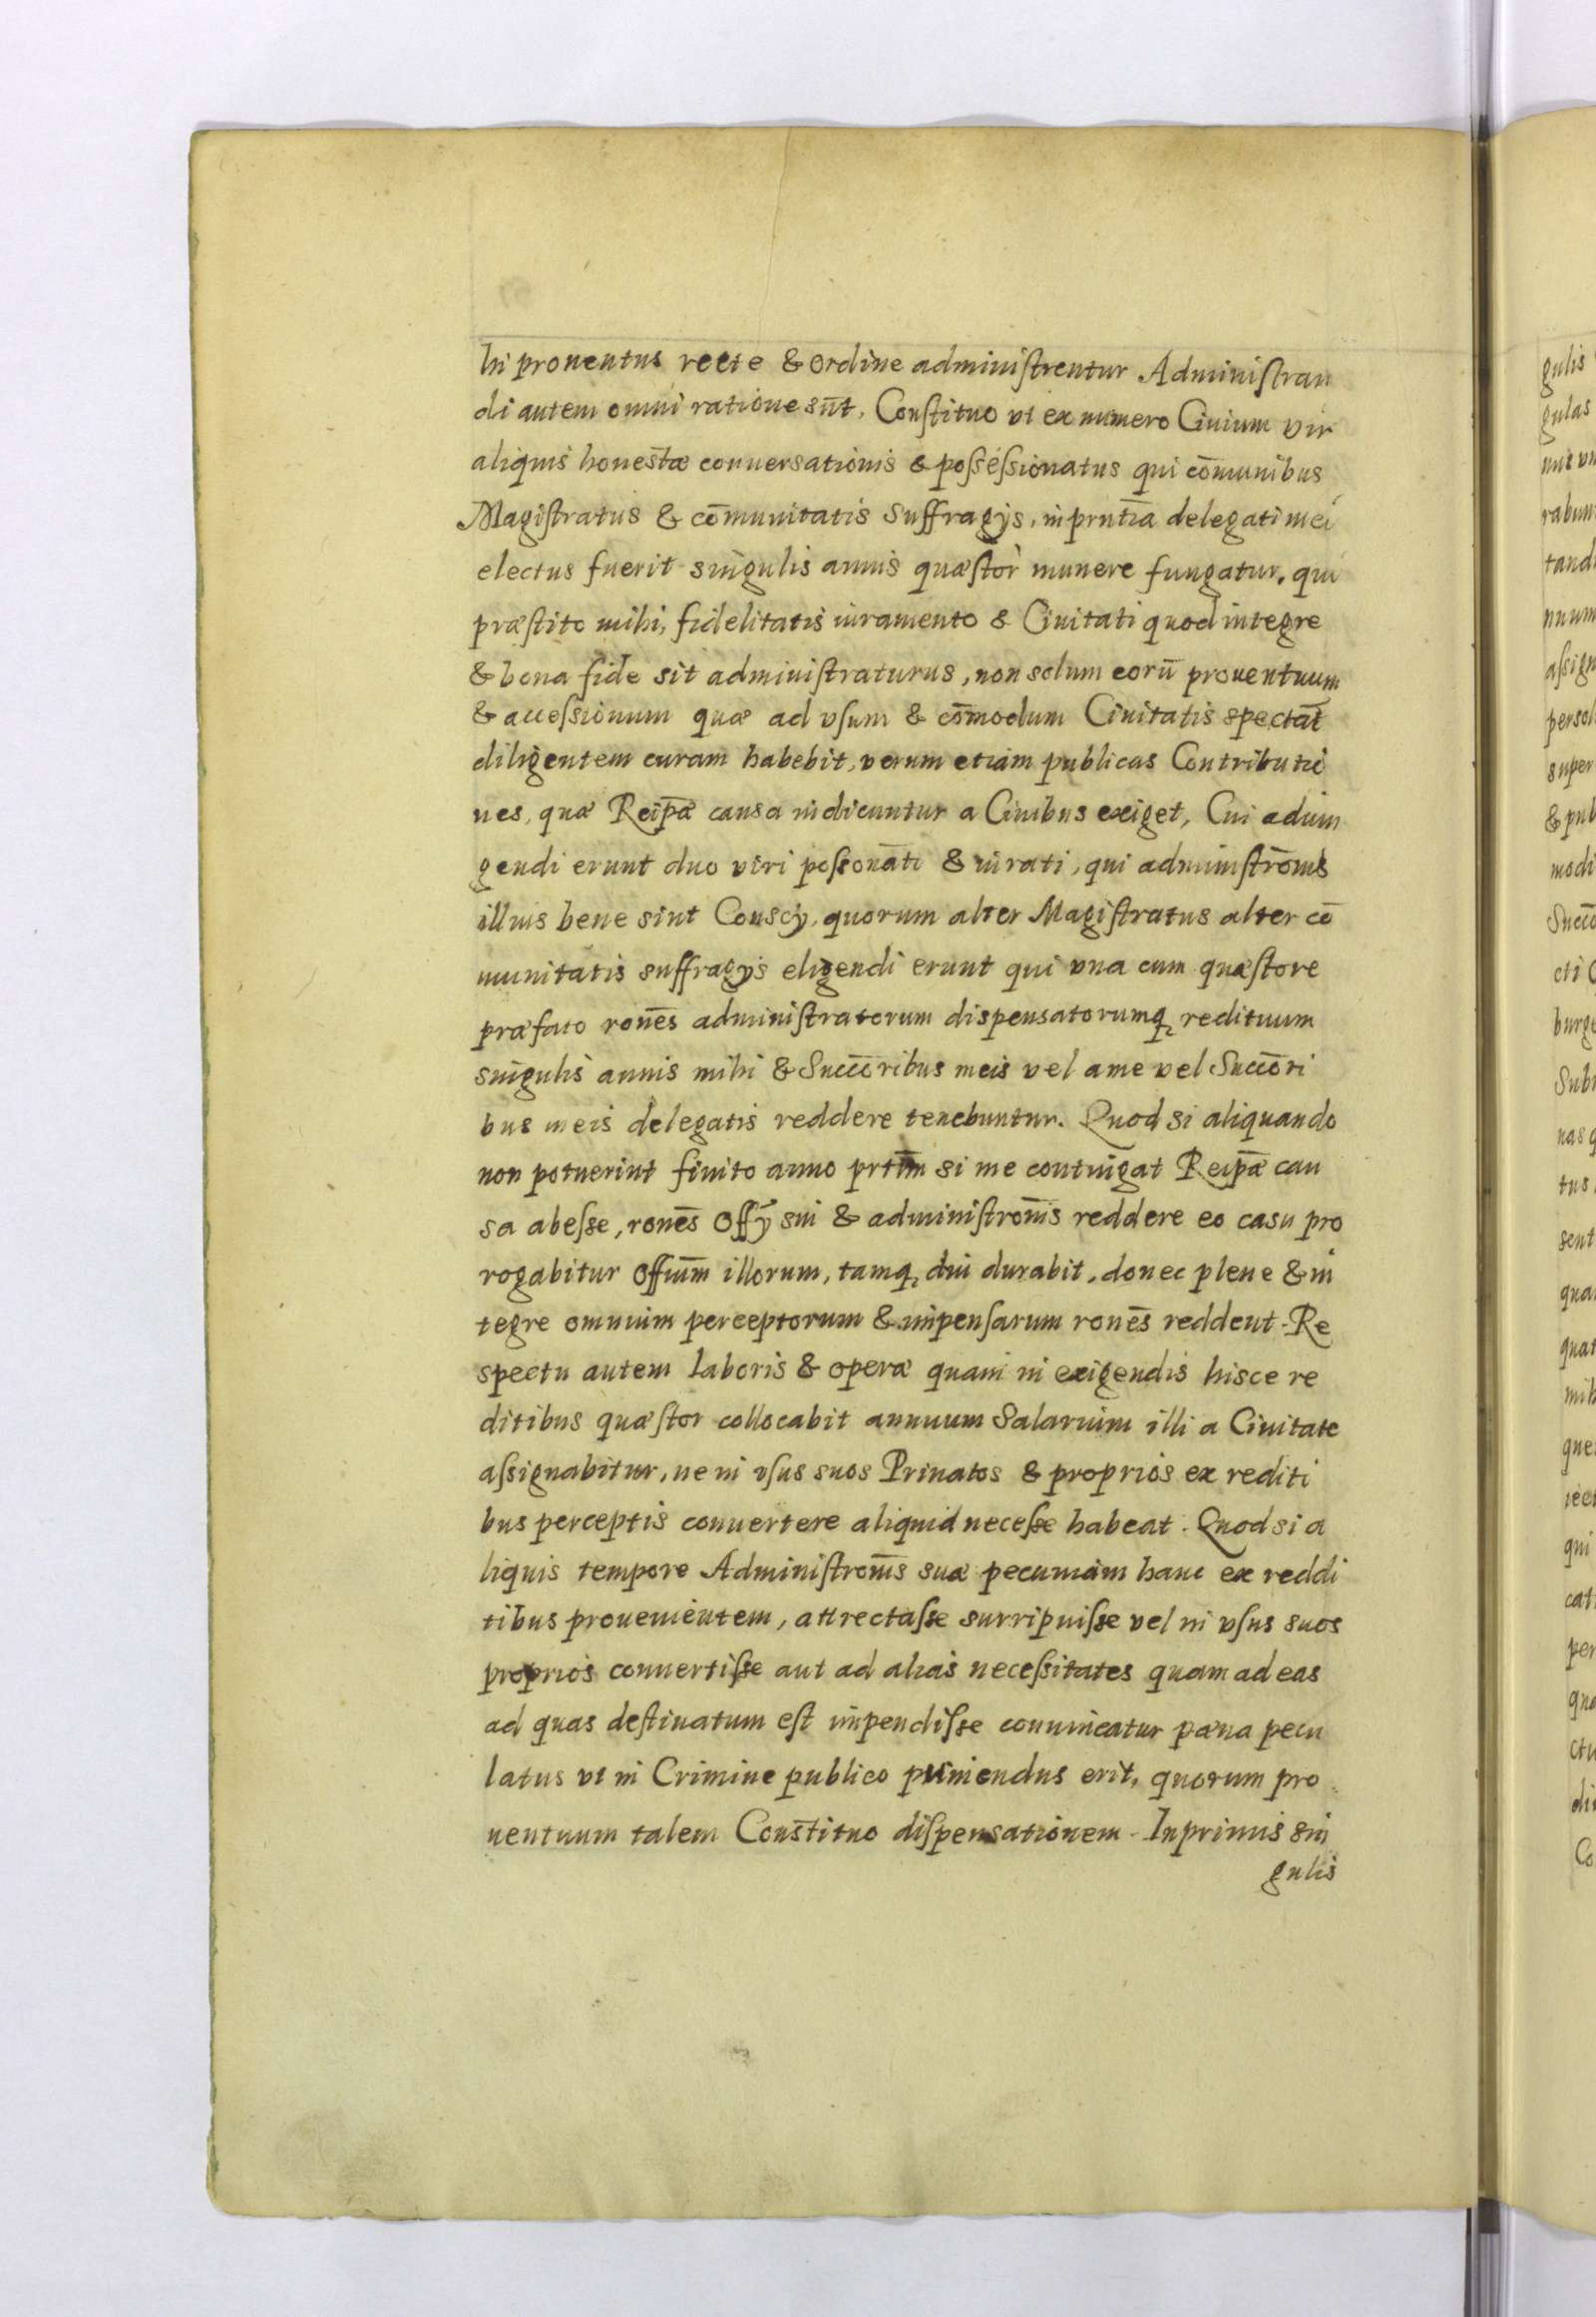 hi prouentus recte & ordine adminiſtrentur Adminiſtran
di autem omni ratione sūt, Conſtituo vt ex numero Ciuium vir
aliquis honestæ conuersationis & poſseſsionatus qui cōmunibus
Magiſtratus & cōmunitatis Suffragys, in prntīa delegati mei
electus fuerit singulis annis quæſtor̄ munere fungatur, qui
præſtito mihi, fidelitatis iuramento & Ciuitati quod integre
& bona fide sit adminiſtraturus, non solum eorū prouentuum
& acceſsionum quæ ad vſum & cōmodum Ciuitatis spectāt
diligentem curam habebit, verum etiam publicas Contributio
nes, quæ Reipǣ causa indicuntur a Ciuibus exiget, Cui adiun
gendi erunt duo viri poſsonāti & iurati, qui adminiſtrōnis
illius bene sint Conscy, quorum alter Magiſtratus alter cō
munitatis suffragys eligendi erunt qui vna cum quæſtore
præfato ronēs adminiſtratorum dispensatorumq, redituum
singulis annis mihi & Succōribus meis vel a me vel Succōri
bus meis delegatis reddere tenebuntur. Quod si aliquando
non potuerint finito anno prtīm si me contingat Reipǣ cau
sa abeſse, ronēs Offȳ sui & adminiſtrōnis reddere eo casu pro
rogabitur Offiūm illorum, tamq, diu durabit, donec plene & in
tegre omnium perceptorum & impenſarum ronēs reddent. Re
spectu autem laboris & operæ quam in exigendis hisce re
ditibus quæſtor collocabit annuum Salarium illi a Ciuitate
aſsignabitur, ne in vſus suos Priuatos & proprios ex rediti
bus perceptis conuertere aliquid neceſse habeat. Quod si a
liquis tempore Adminiſtrōnis suæ pecuniam hanc ex reddi
tibus prouenientem, attrectaſse surripuiſse vel in vſus suos
proprios conuertiſse aut ad alias neceſsitates quam ad eas
ad quas deſtinatum eſt impendiſse conuincatur pæna pecu
latus vt in Crimine publico puniendus erit, quorum pro
uentuum talem Constituo diſpensationem. Inprimis sin
gulis